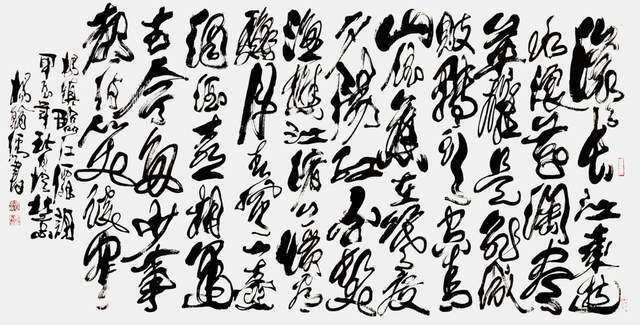 滚滚长江东逝
水浪花淘尽
英雄是非成
败转头空青
山依旧在几度
夕阳红白发
渔樵江渚上惯看
秋月春风一壶
浊酒喜相逢
古今多少事
都付笑谈中
杨慎临江仙